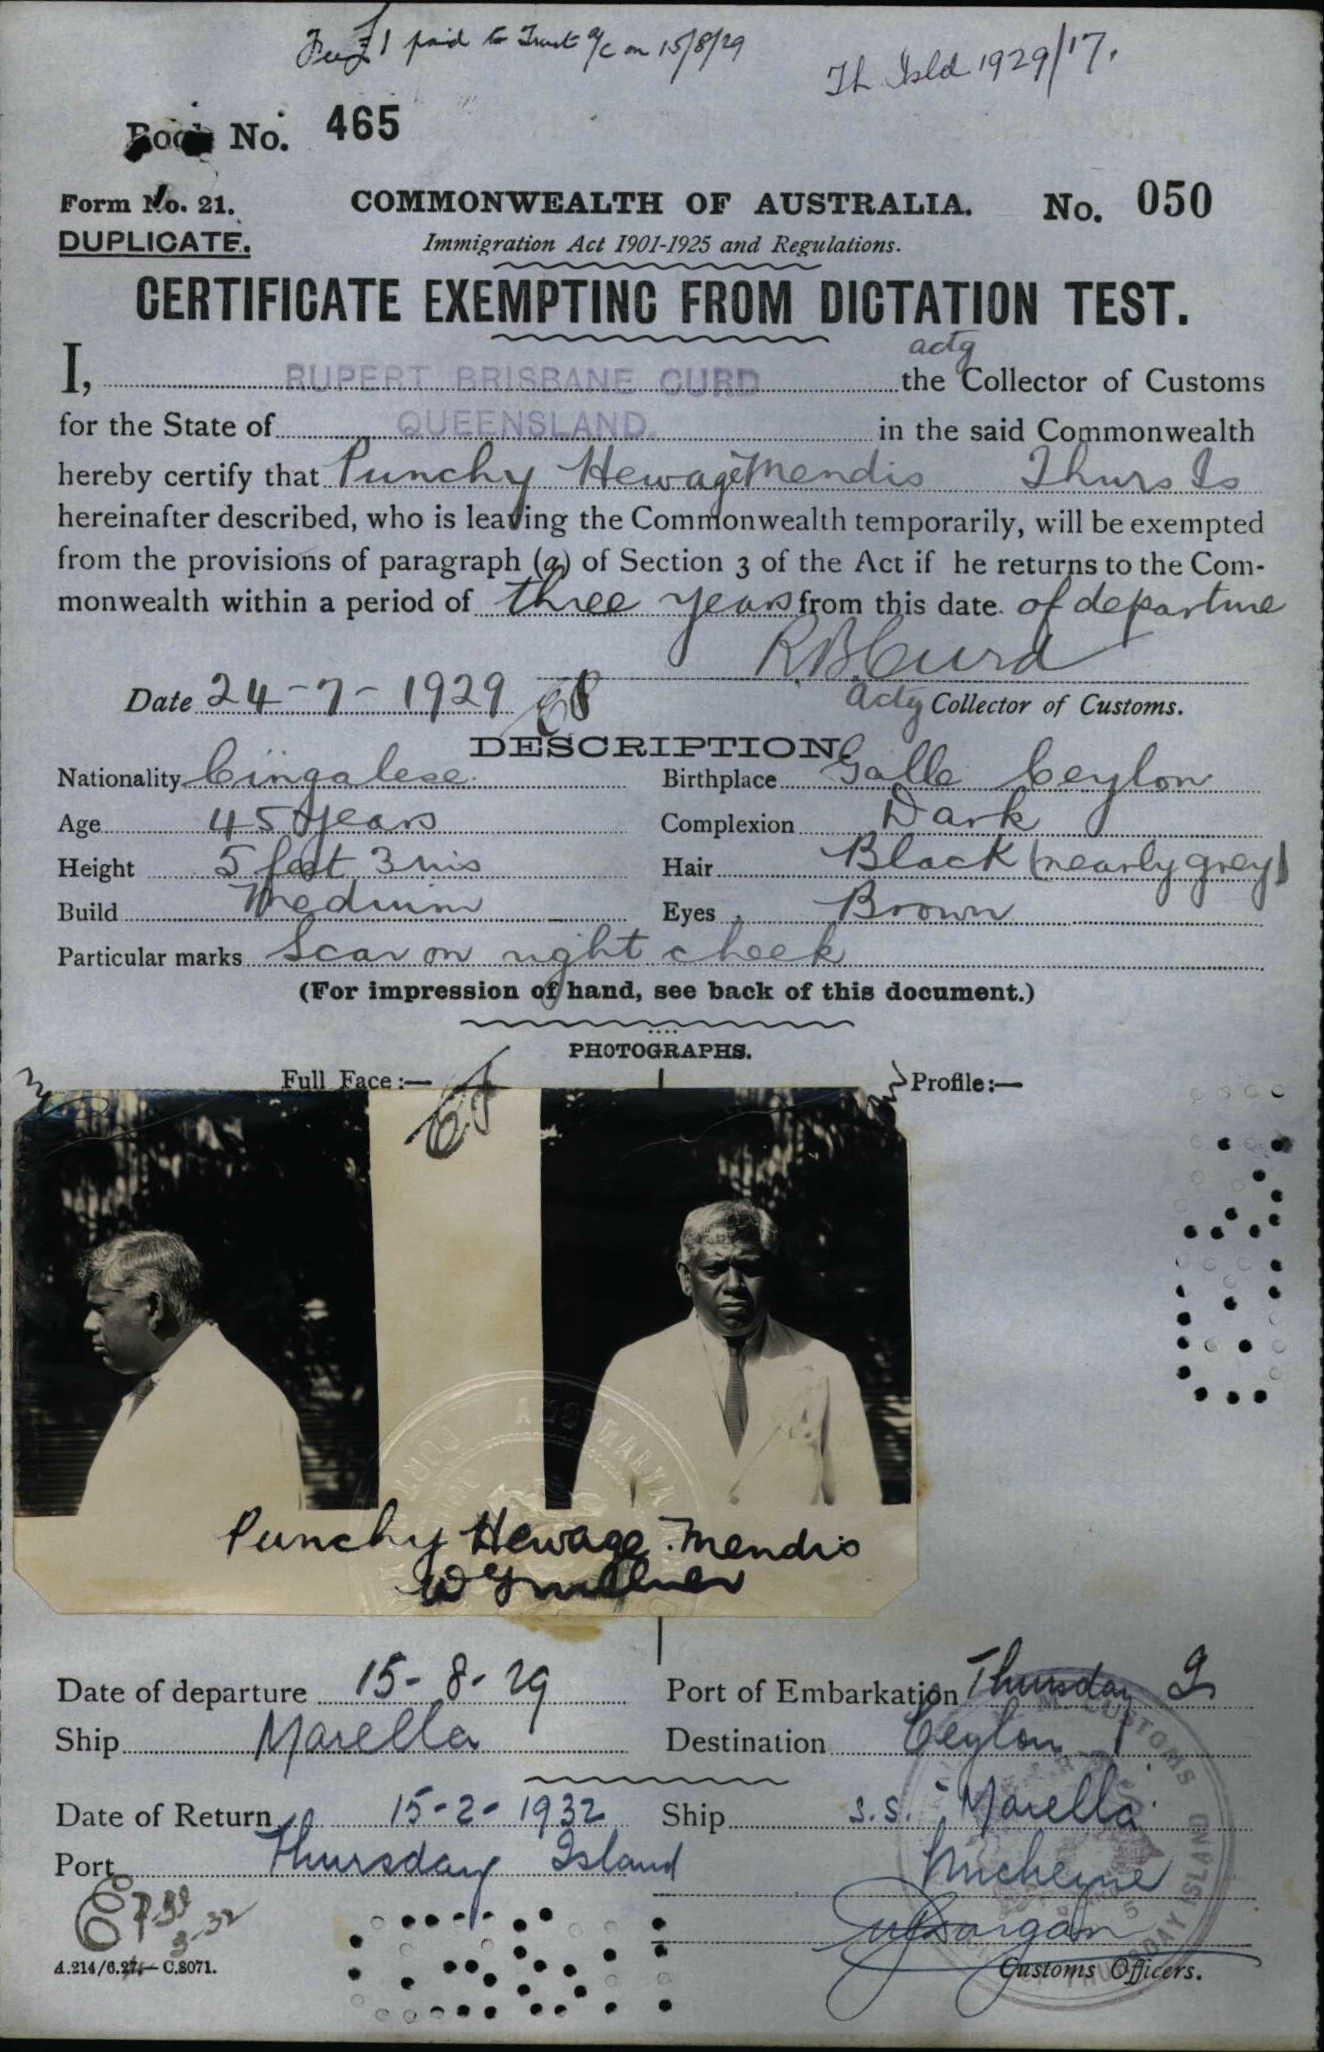 Fee £1 paid to Trust a/c on 15/8/29
Th Isld 1929/17.
Book No. 465
Form No. 21.
COMMONWEALTH OF AUSTRALIA.
No. 050
DUPLICATE.
Immigration Act 1901-1925 and Regulations.
CERTIFICATE EXEMPTING FROM DICTATION TEST.
actg
I, RUPERT BRISBANE CURD the Collector of Customs
for the State of QUEENSLAND. in the said Commonwealth
hereby certify that Punchy Hewage Mendis Thurs Is
hereinafter described, who is leaving the Commonwealth temporarily, will be exempted
from the provisions of paragraph (a) of Section 3 of the Act if he returns to the Com-
monwealth within a period of three years from this date of departure
R.B. Curd
Date 24-7-1929
actg Collector of Customs.
DESCRIPTION
Nationality Cingalese Birthplace Galle Ceylon
Age 45 years Complexion Dark
Height 5 feet 3 ins Hair Black (nearly grey)
Build Medium Eyes Brown
Particular marks Scar on right cheek
(For impression of hand, see back of this document.)
PHOTOGRAPHS.
Full Face:— Profile:—
Punchy Hewage Mendis
Date of departure 15-8-29 Port of Embarkation Thursday Is
Ship Marella Destination Ceylon
Date of Return 15-2-1932 Ship s.s. Marella
Port Thursday Island
Customs Officers.
A.214/6.27.—C.8071.
CUSTOMS
THURSDAY ISLAND